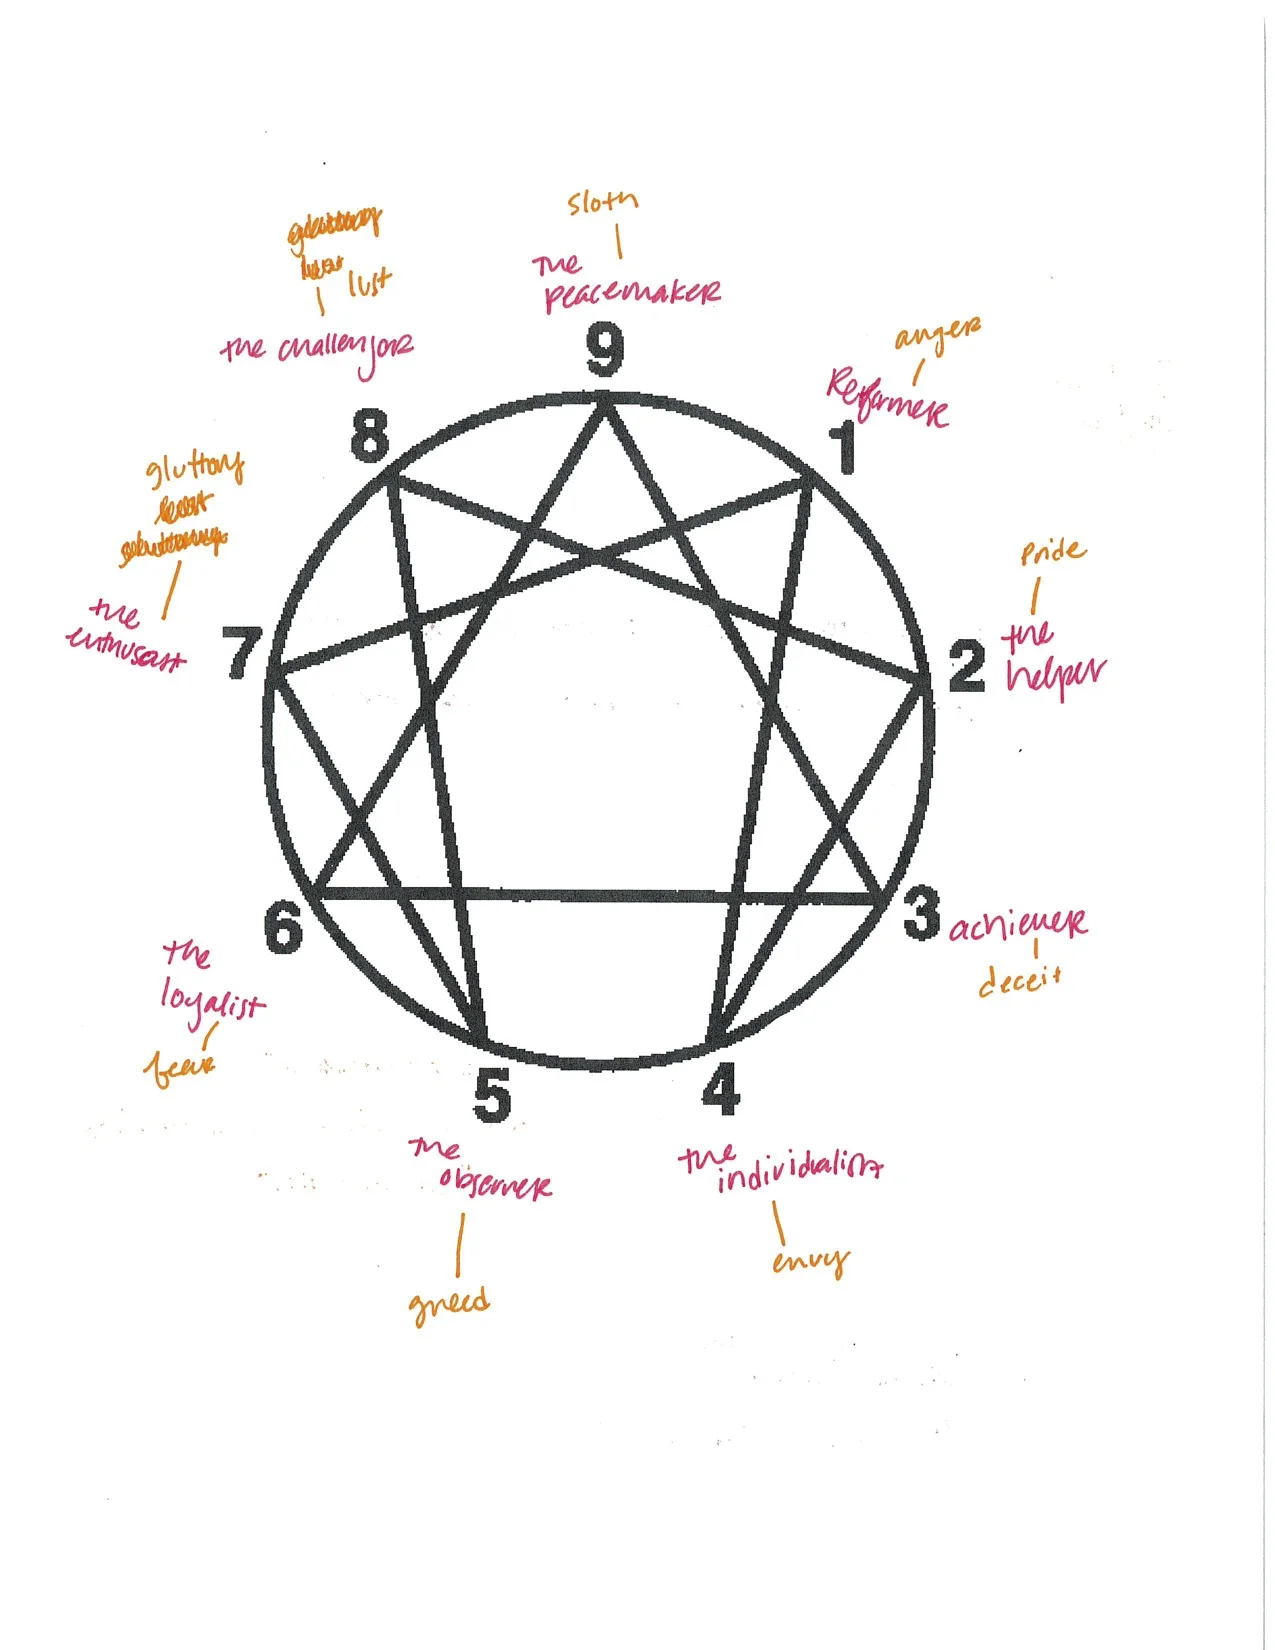 sloth
The
peacemaker
9
lust
the challengor
8
anger
Reformer
1
gluttony
the
enthusast
7
Pride
the
helper
2
6
the
loyalist
fear
3 achiever
deceit
5
The
observer
greed
4
the
individualist
envy